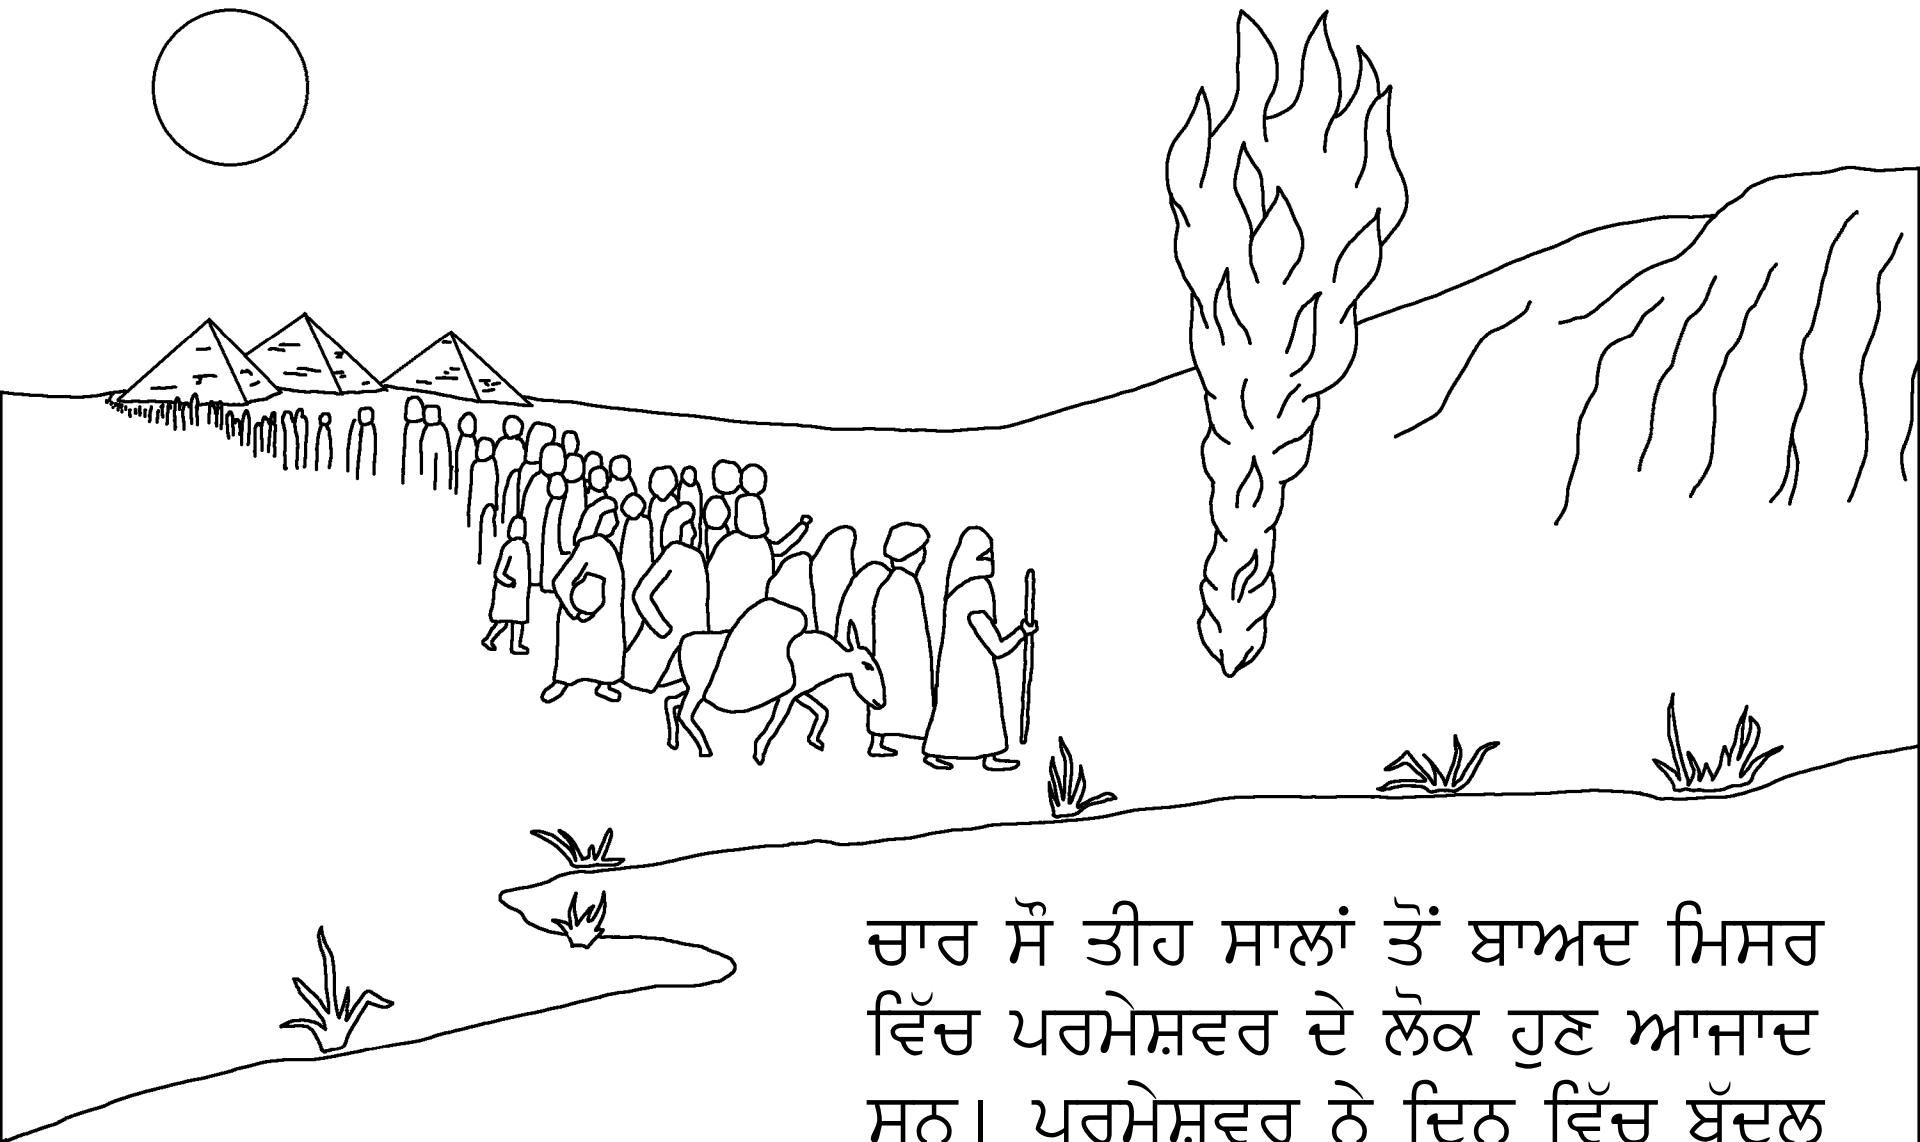 ਚਾਰ ਸੌ ਤੀਹ ਸਾਲਾਂ ਤੋਂ ਬਾਅਦ ਮਿਸਰ
ਵਿੱਚ ਪਰਮੇਸ਼ਵਰ ਦੇ ਲੋਕ ਹੁਣ ਆਜਾਦ
ਸਨ। ਪਰਮੇਸ਼ਵਰ ਨੇ ਦਿਨ ਵਿੱਚ ਬੱਦਲ